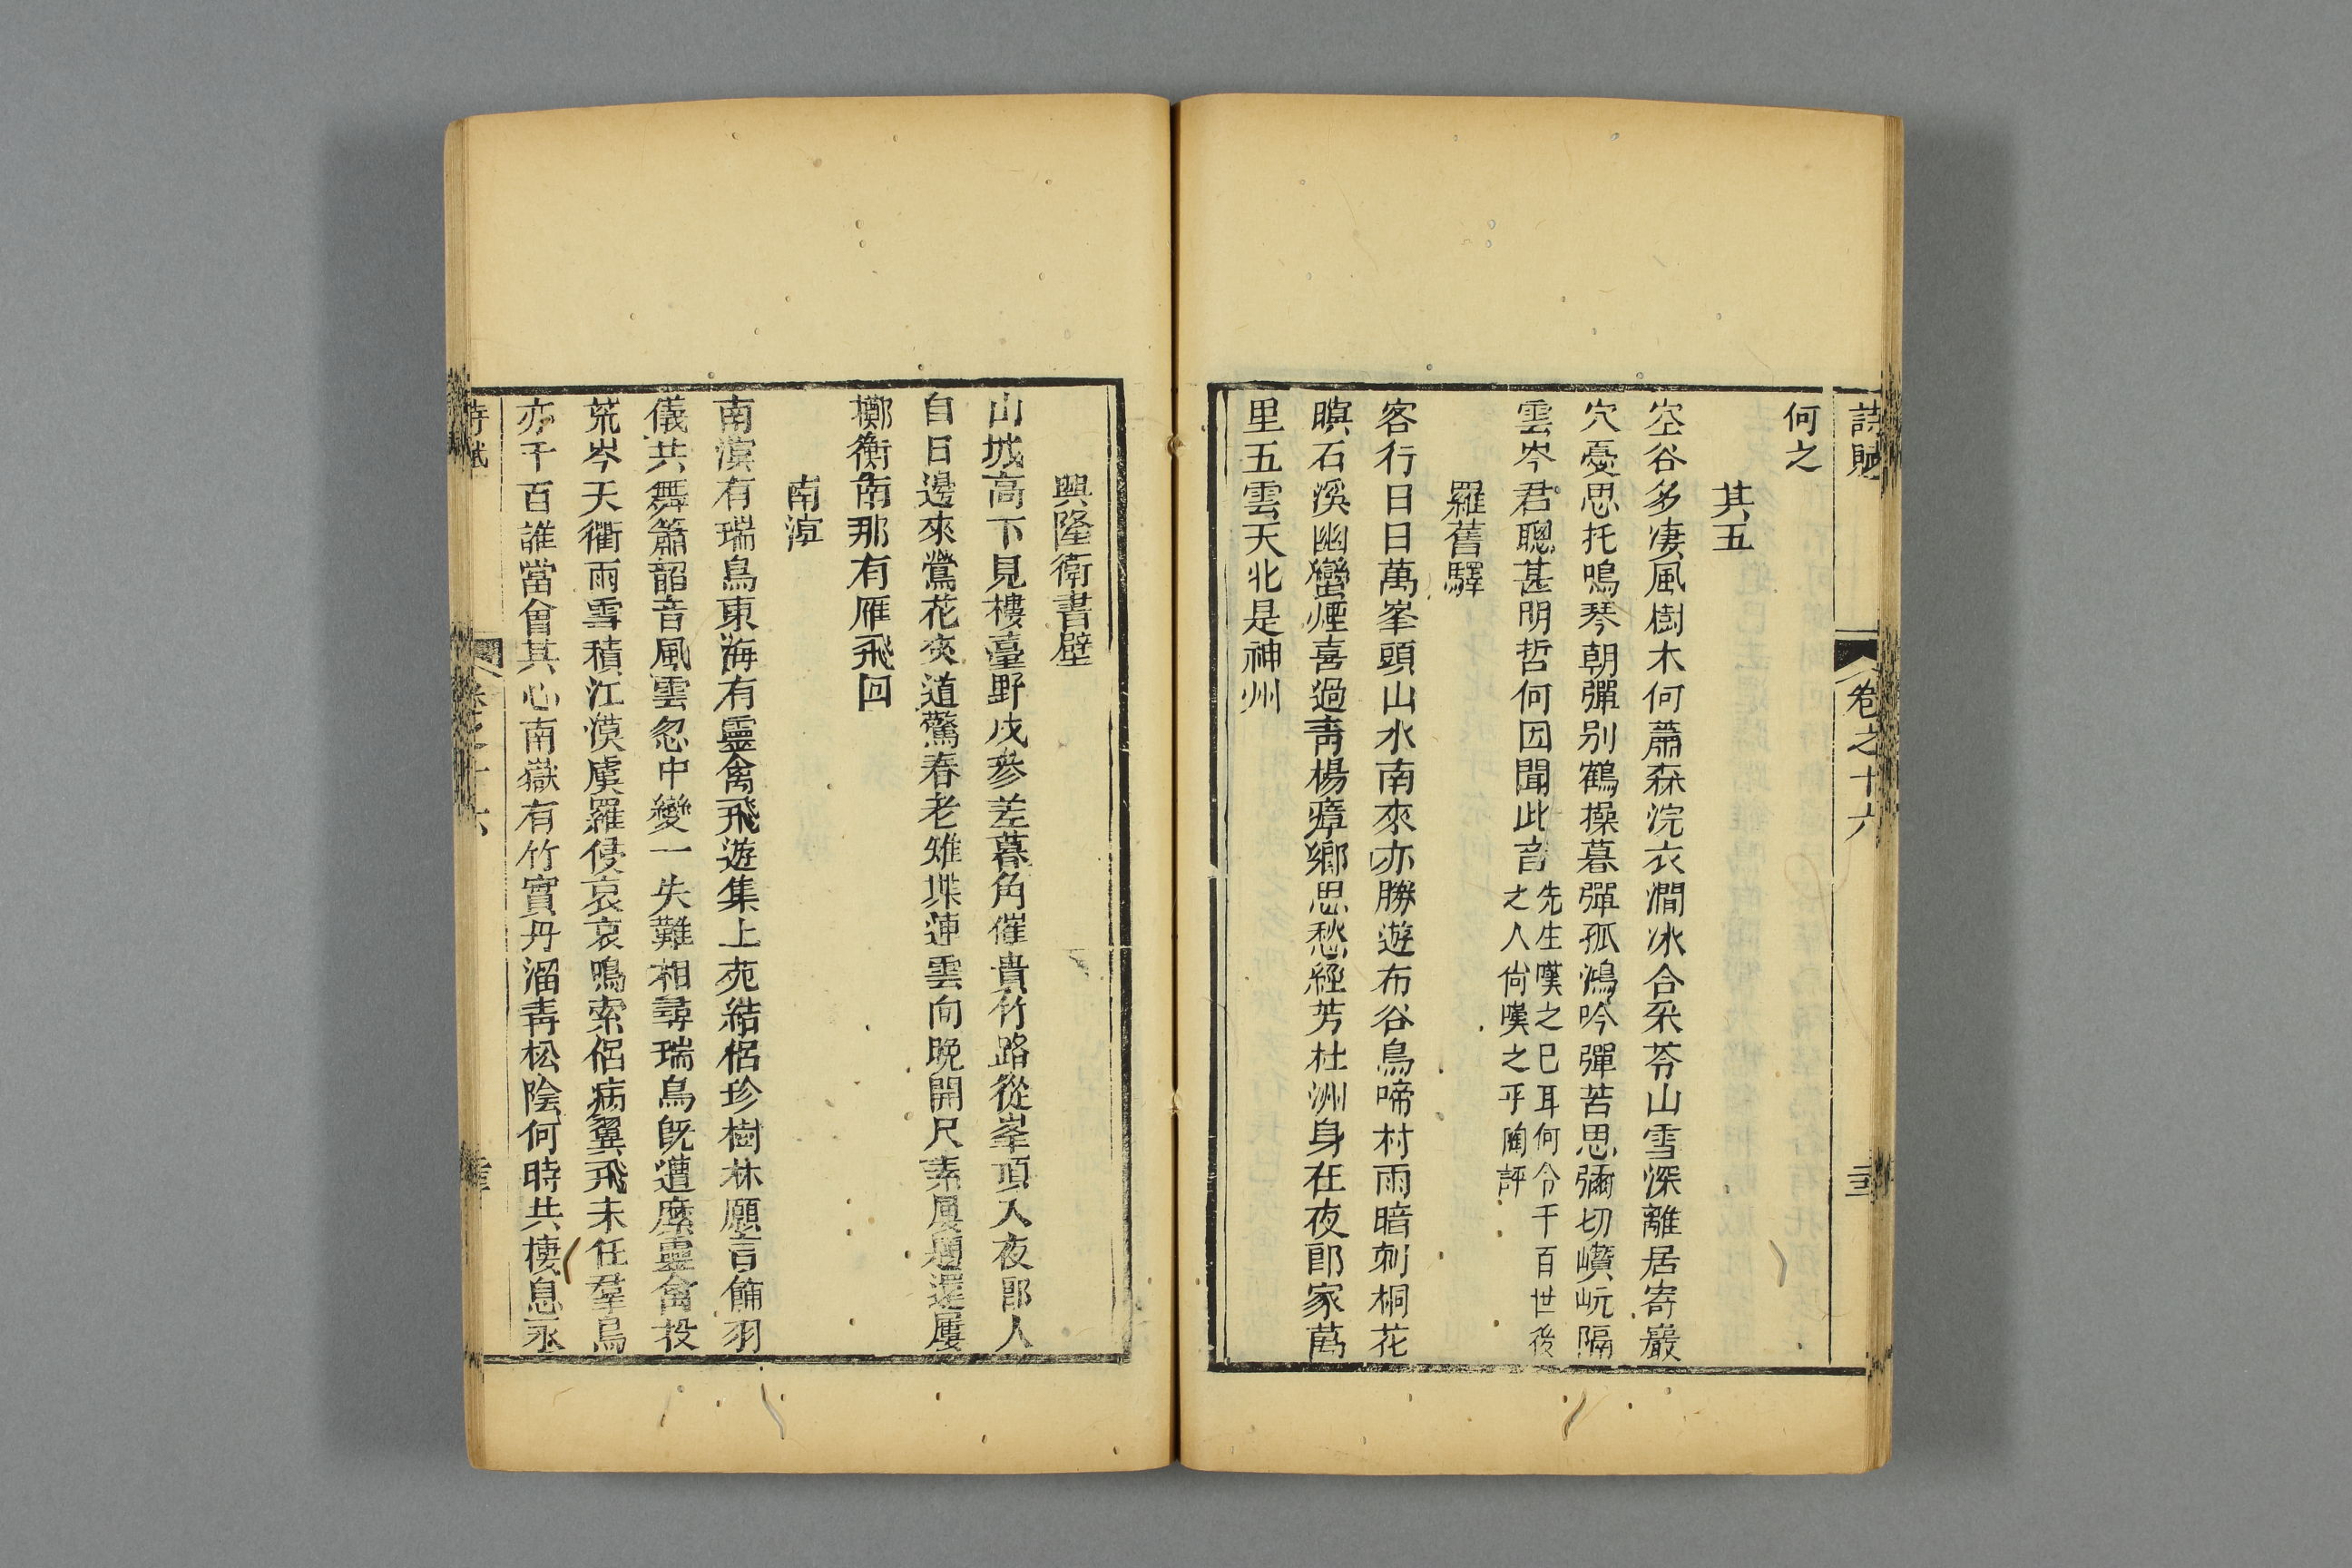 詩賦 卷之十六
何之
其五
空谷多淒風樹木何蕭森浣衣澗冰合采苓山雪深離居寄巖
穴憂思托鳴琴朝彈別鶴操暮彈孤鴻吟彈苦思彌切巑岏隔
雲岑君聰甚明哲何因聞此音
先生嘆之巳耳何令千百世後
之人尙嘆之乎陶評
羅舊驛
客行日日萬峯頭山水南來亦勝遊布谷鳥啼村雨暗刺桐花
暝石溪幽蠻煙喜過青楊瘴鄉思愁經芳杜洲身在夜郎家萬
里五雲天北是神州
興隆衛書壁
山城高下見樓臺野戍參差暮角催貴竹路從峯頂入夜郎人
自日邊來鶯花夾道驚春老雉堞連雲向晚開尺素屢題還屢
擲衡南那有雁飛回
南溟
南溟有瑞鳥東海有靈禽飛遊集上苑結侶珍樹林願言飾羽
儀共舞簫韶音風雲忽中變一失難相尋瑞鳥旣遭縻靈禽投
荒岑天衢雨雪積江漠虞羅侵哀哀鳴索侶病翼飛未任羣鳥
亦千百誰當會其心南嶽有竹實丹溜青松陰何時共棲息永
詩賦 卷之十六